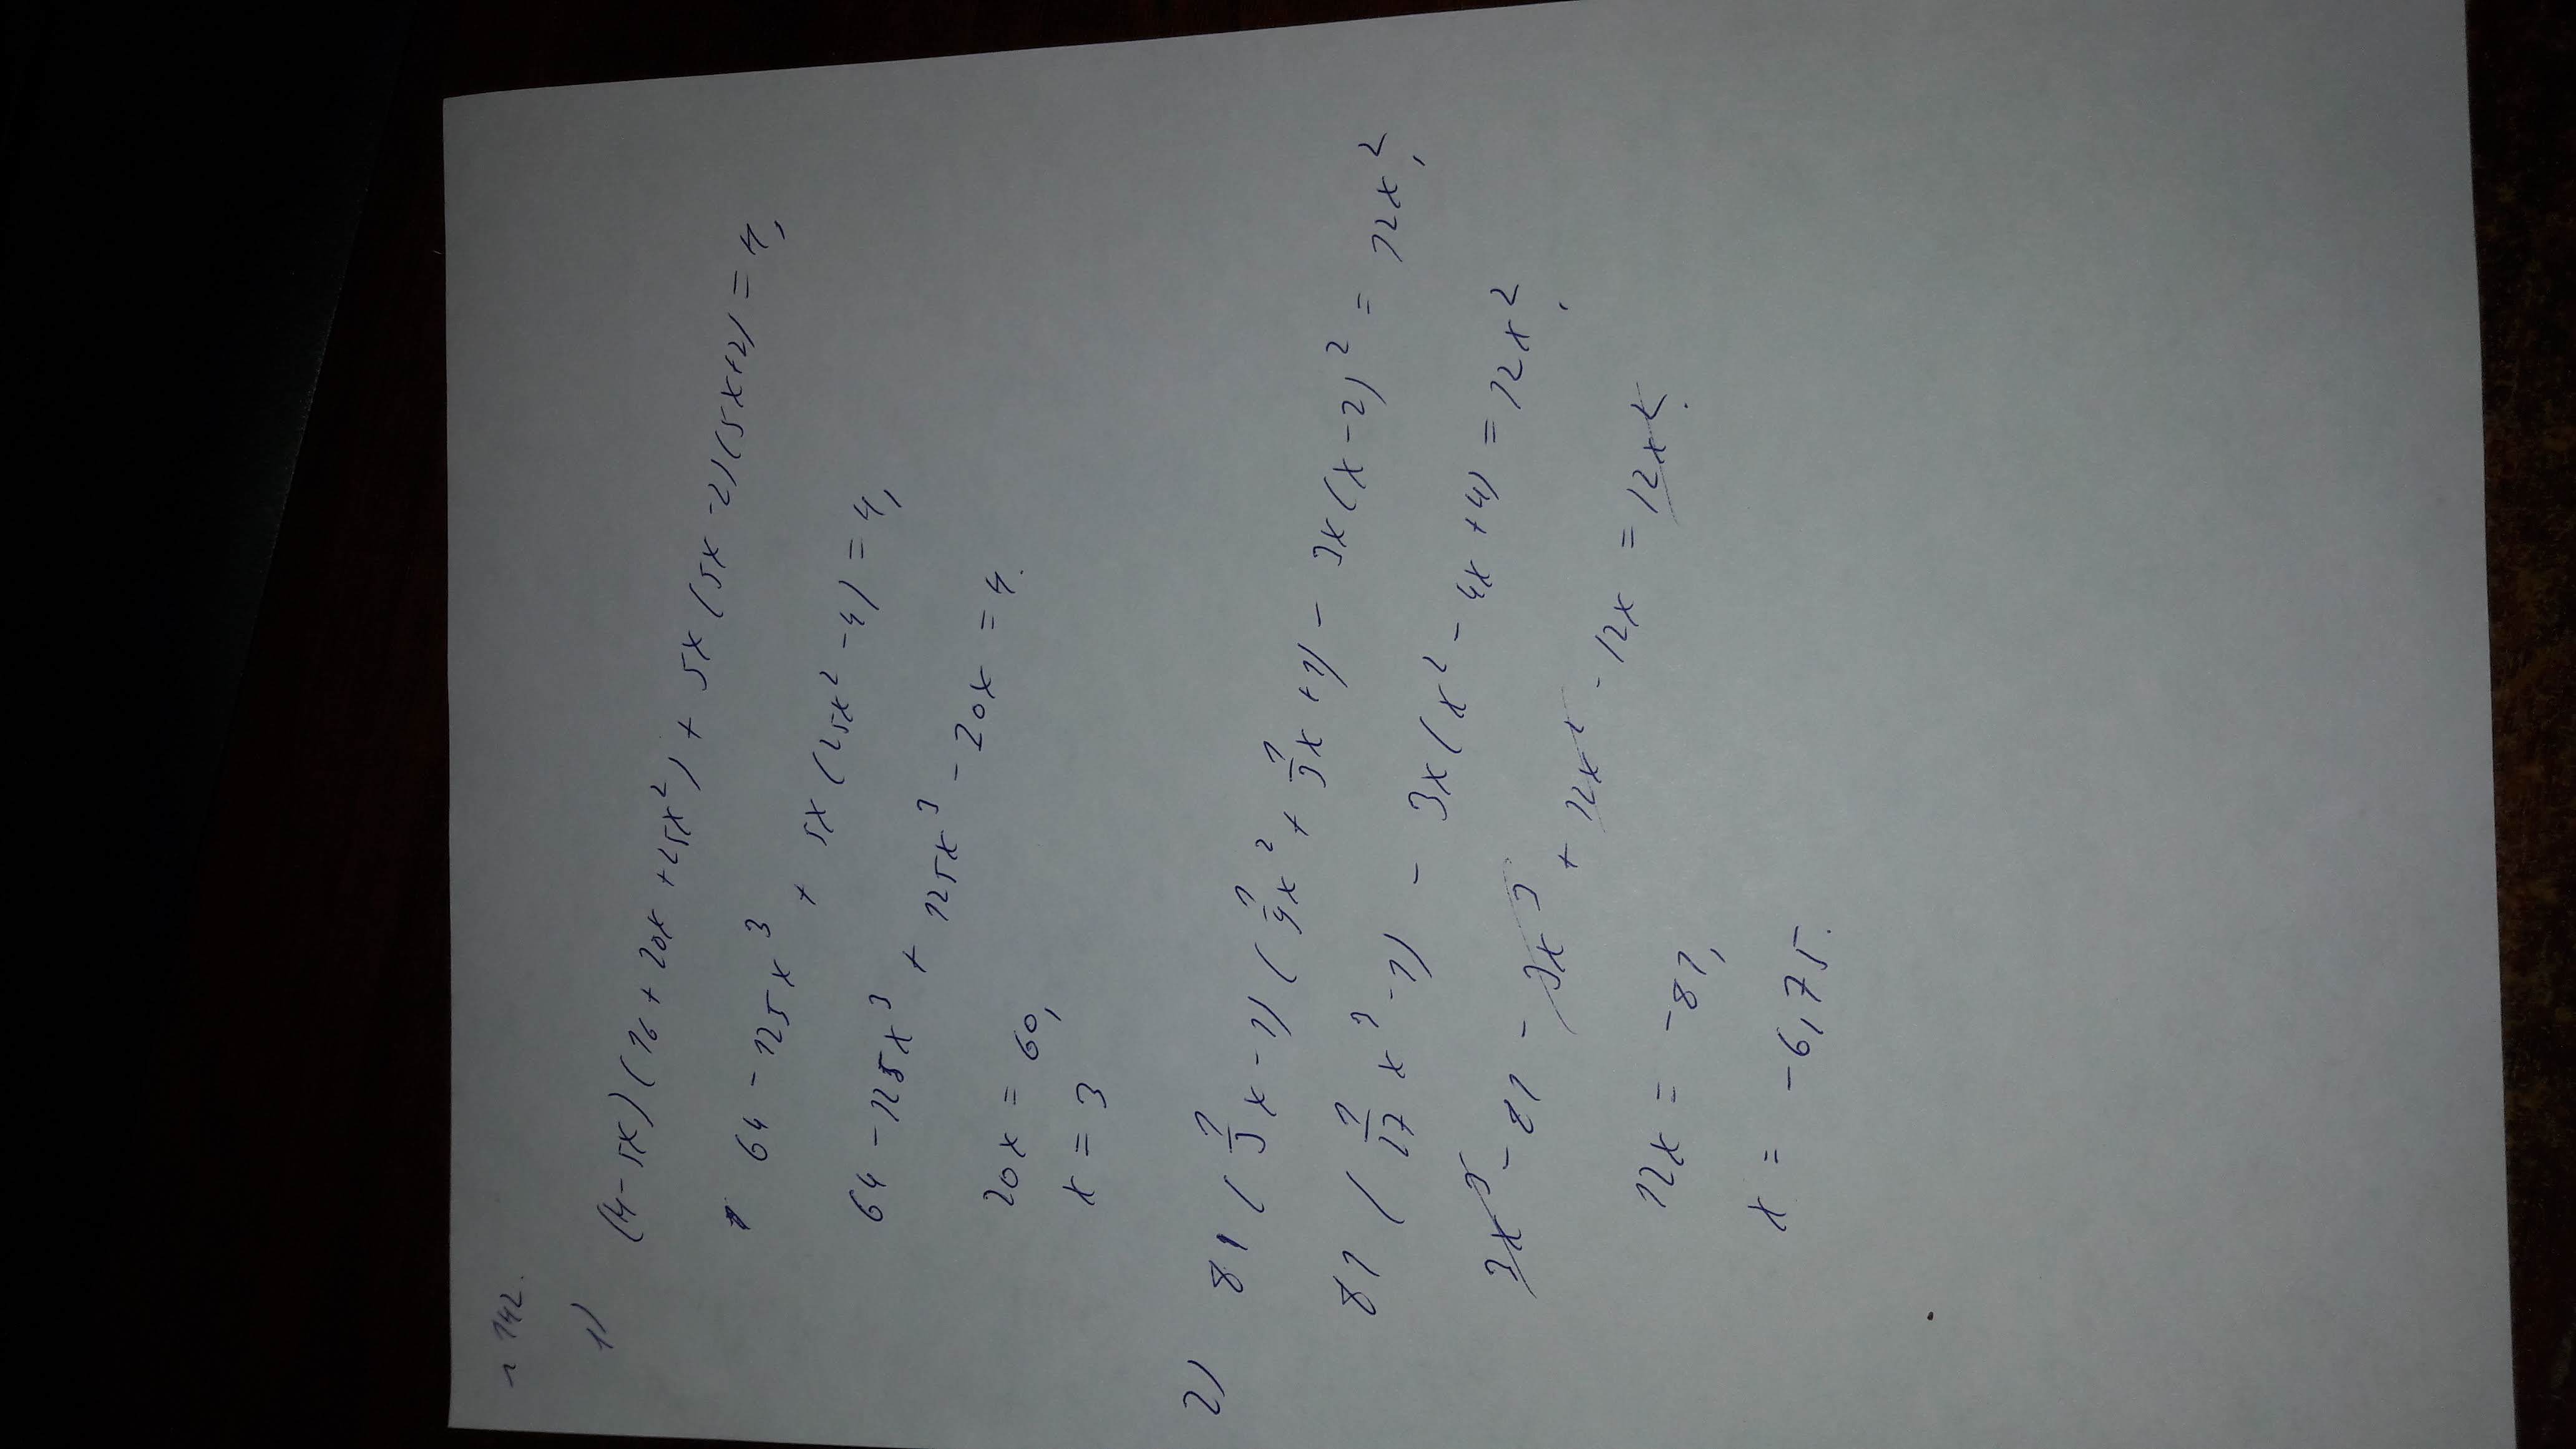 № 142.
1) (4-5x)(16+20x+25x²)+5x(5x-2)(5x+2)=4,
64-125x³+5x(25x²-4)=4,
64-125x³+125x³-20x=4.
20x=60,
x=3
2) 81(1/3x-1)(1/9x²+1/3x+1)-3x(x-2)²=12x²,
81(1/27x³-1)-3x(x²-4x+4)=12x²,
3x³-81-3x³+12x²-12x=12x².
12x=-81,
x=-6,75.